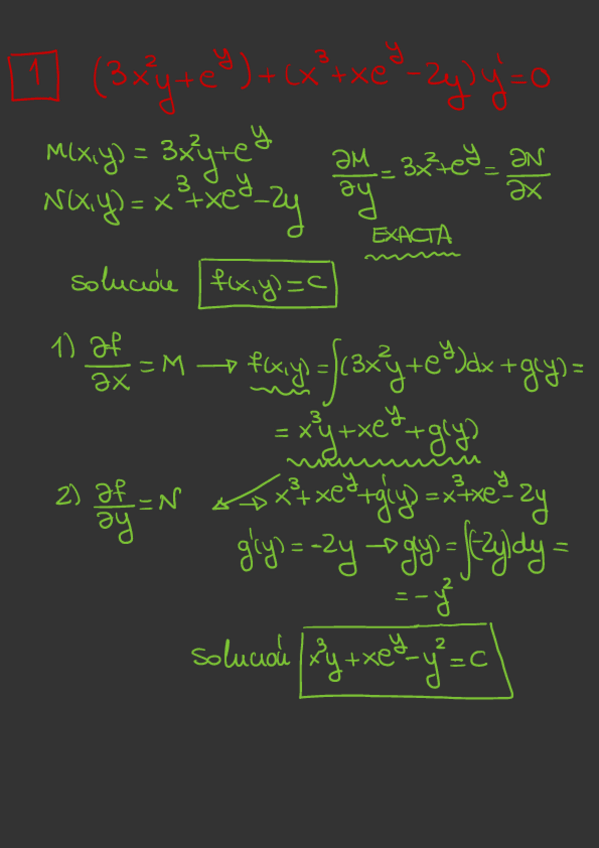 1 (3x²y+e^y)+(x³+xe^y-2y)y'=0
M(x,y) = 3x²y+e^y
N(x,y) = x³+xe^y-2y
∂M/∂y = 3x²+e^y = ∂N/∂x
EXACTA
Solución f(x,y)=C
1) ∂f/∂x = M → f(x,y) = ∫(3x²y+e^y)dx + g(y) =
= x³y+xe^y+g(y)
2) ∂f/∂y = N → x³+xe^y+g'(y) = x³+xe^y-2y
g'(y) = -2y → g(y) = ∫(-2y)dy =
= -y²
Solución x³y+xe^y-y²=C